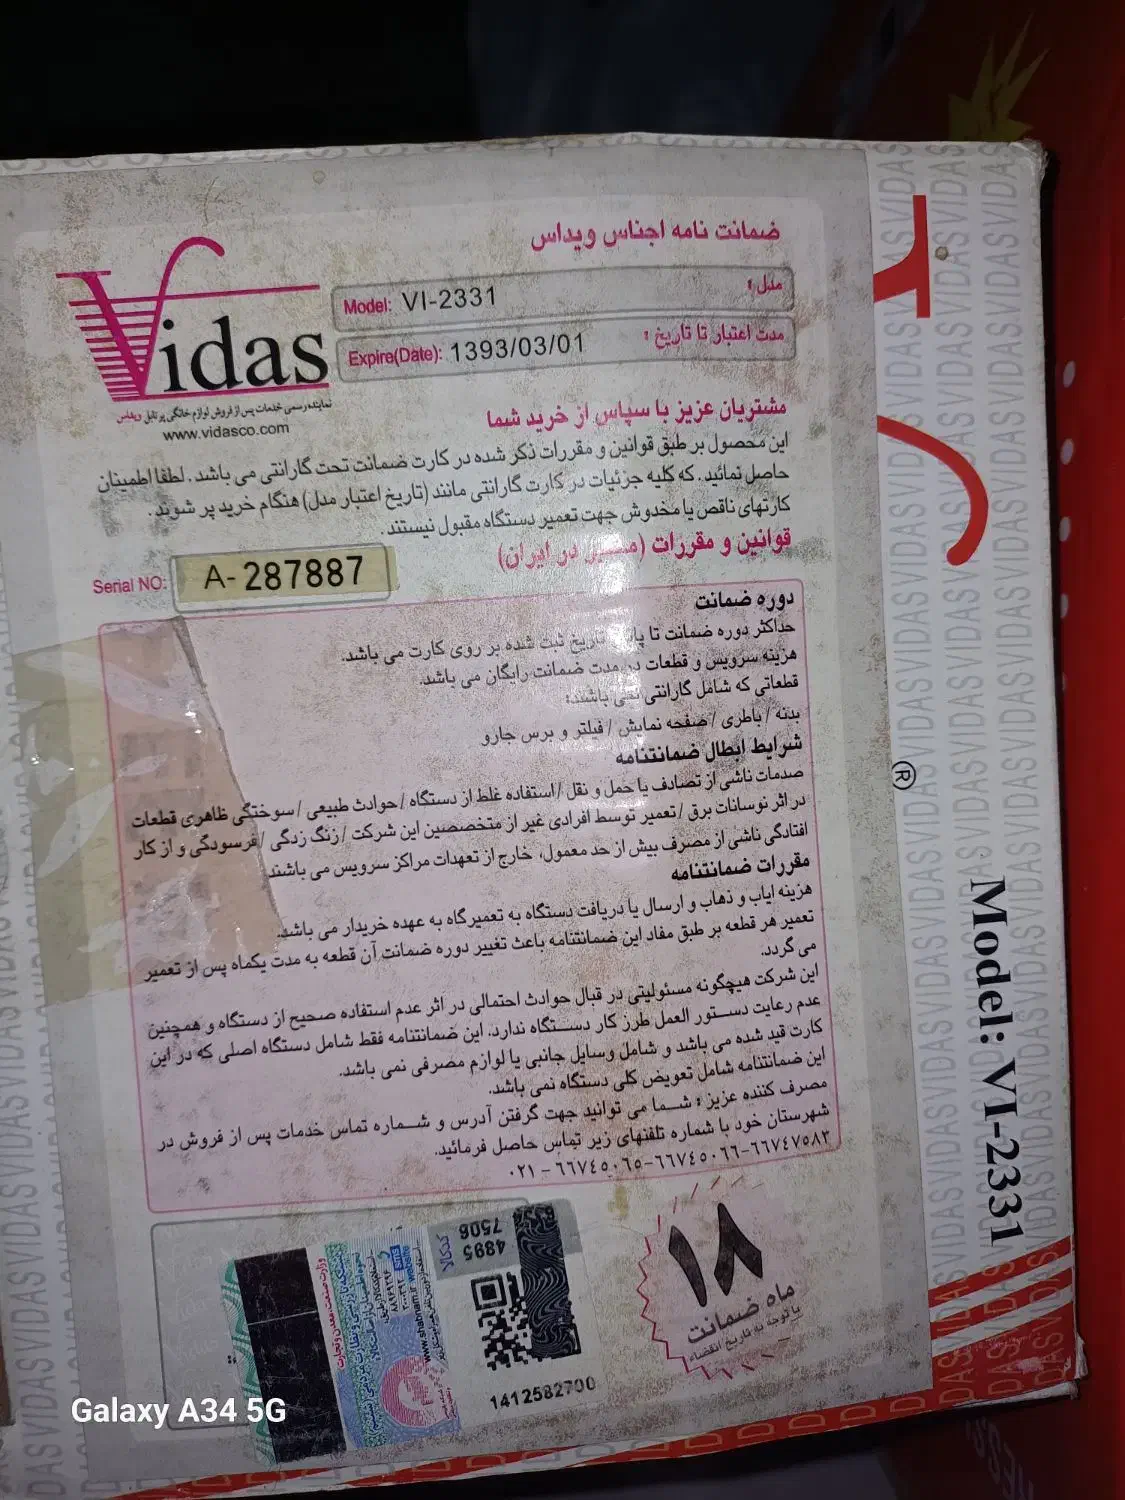 ضمانت نامه اجناس ویداس
Vidas
نماینده رسمی خدمات پس از فروش لوازم خانگی پرتابل ویداس
www.vidasco.com
Model: VI-2331 مدل :
Expire(Date): 1393/03/01 مدت اعتبار تا تاریخ :
مشتریان عزیز با سپاس از خرید شما
این محصول بر طبق قوانین و مقررات ذکر شده در کارت ضمانت تحت گارانتی می باشد . لطفا اطمینان
حاصل نمائید . که کلیه جزئیات در کارت گارانتی مانند (تاریخ اعتبار مدل) هنگام خرید پر شوند .
کارتهای ناقص یا مخدوش جهت تعمیر دستگاه مقبول نیستند .
قوانین و مقررات (معتبر در ایران)
Serial NO: A- 287887
دوره ضمانت
حداکثر دوره ضمانت تا پایان تاریخ ثبت شده بر روی کارت می باشد.
هزینه سرویس و قطعات در مدت ضمانت رایگان می باشد.
قطعاتی که شامل گارانتی نمی باشند:
بدنه / باطری / صفحه نمایش / فیلتر و برس جارو
شرایط ابطال ضمانتنامه
صدمات ناشی از تصادف یا حمل و نقل / استفاده غلط از دستگاه / حوادث طبیعی / سوختگی ظاهری قطعات
در اثر نوسانات برق / تعمیر توسط افرادی غیر از متخصصین این شرکت / زنگ زدگی / فرسودگی و از کار
افتادگی ناشی از مصرف بیش از حد معمول، خارج از تعهدات مراکز سرویس می باشند
مقررات ضمانتنامه
هزینه ایاب و ذهاب و ارسال یا دریافت دستگاه به تعمیرگاه به عهده خریدار می باشد.
تعمیر هر قطعه بر طبق مفاد این ضمانتنامه باعث تغییر دوره ضمانت آن قطعه به مدت یکماه پس از تعمیر
می گردد.
این شرکت هیچگونه مسئولیتی در قبال حوادث احتمالی در اثر عدم استفاده صحیح از دستگاه و همچنین
عدم رعایت دستور العمل طرز کار دستگاه ندارد. این ضمانتنامه فقط شامل دستگاه اصلی که در این
کارت قید شده می باشد و شامل وسایل جانبی یا لوازم مصرفی نمی باشد.
این ضمانتنامه شامل تعویض کلی دستگاه نمی باشد.
مصرف کننده عزیز : شما می توانید جهت گرفتن آدرس و شماره تماس خدمات پس از فروش در
شهرستان خود با شماره تلفنهای زیر تماس حاصل فرمائید.
۰۲۱ - ۶۶۷۴۵۰۶۵-۶۶۷۴۵۰۶۶-۶۶۷۴۷۵۸۳
۱۸
ماه ضمانت
با توجه به تاریخ انقضاء
4895
7506
کد کالا
1412582700
®
Model: VI-2331
Galaxy A34 5G